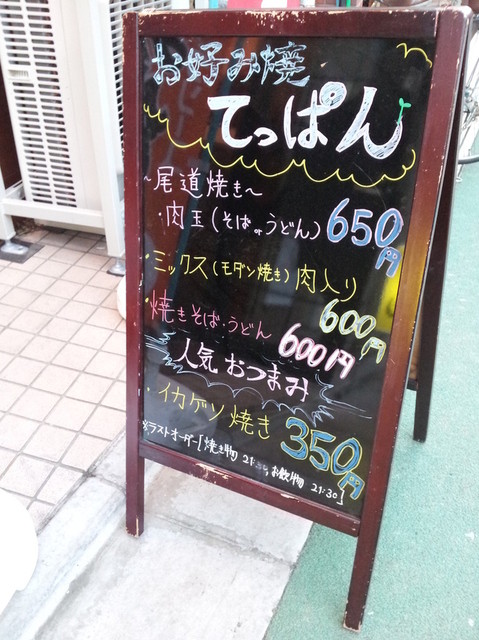 お好み焼
てっぱん
~尾道焼き~
・肉玉(そばorうどん) 650円
・ミックス(モダン焼き)肉入り
600円
・焼きそば・うどん 600円
人気おつまみ
・イカゲソ焼き 350円
※ラストオーダー[焼き物 お飲物 21:30]